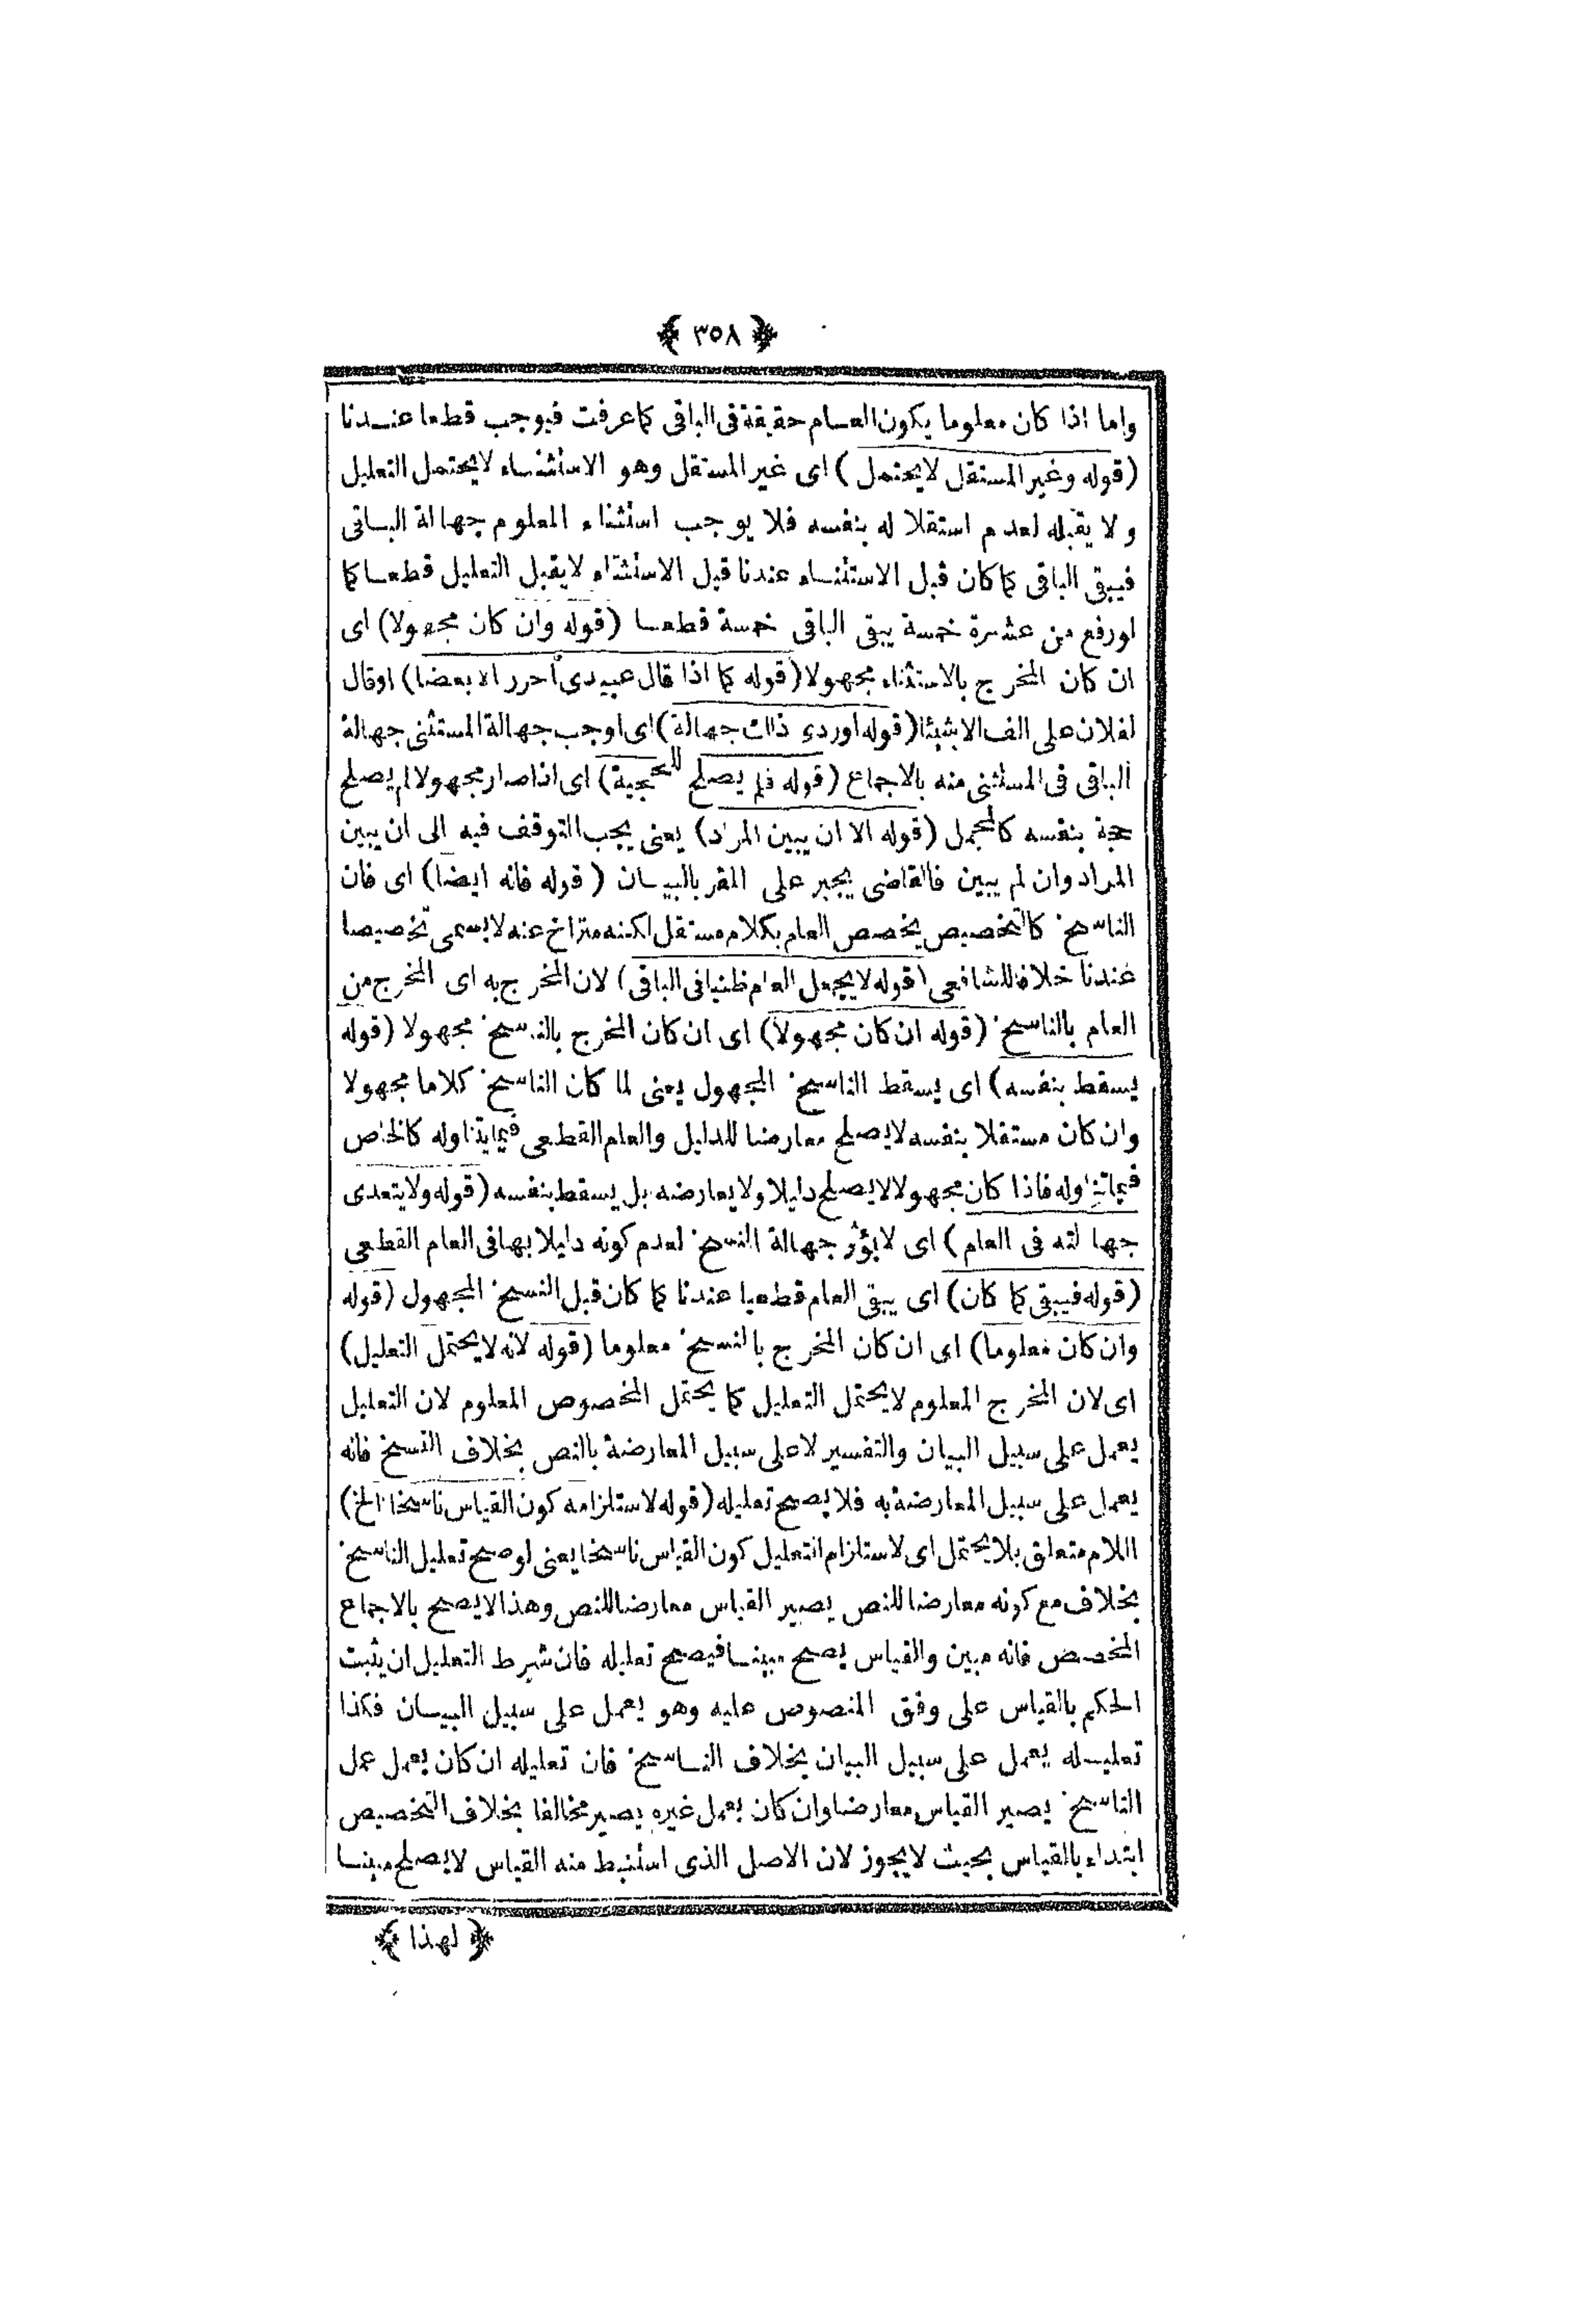 ﴿ ٣٥٨ ﴾
واما اذا كان معلوما يكون العام حقيقة فى الباقى كما عرفت فيوجب قطعا عندنا
(قوله وغير المستقل لا يحتمل) اى غير المستقل وهو الاستثناء لا يحتمل التعليل
ولا يقبله لعدم استقلاله بنفسه فلا يوجب استثناء المعلوم جهالة الباقى
فيبقى الباقى كما كان قبل الاستثناء عندنا قبل الاستثناء لا يقبل التعليل قطعا كما
لو رفع من عشرة خمسة يبقى الباقى خمسة قطعا (قوله وان كان مجهولا) اى
ان كان المخرج بالاستثناء مجهولا (قوله كما اذا قال عبيدى أحرر الا بعضا) او قال
لفلان على الف الا شيئا (قوله اوردى ذاك جهالة) اى اوجب جهالة المستثنى جهالة
الباقى فى المستثنى منه بالاجماع (قوله فلم يصلح للحجية) اى اذا صار مجهولا لم يصلح
حجة بنفسه كالمجمل (قوله الا ان يبين المراد) يعنى يجب التوقف فيه الى ان يبين
المراد وان لم يبين فالقاضى يجبر على المقر بالبيان (قوله فانه ايضا) اى فان
الناسخ كالتخصيص يخصص العام بكلام مستقل لكنه متراخ عنه لا يسمى تخصيصا
عندنا خلافا للشافعى (قوله لا يجعل العام ظنيا فى الباقى) لان المخرج به اى المخرج من
العام بالناسخ (قوله ان كان مجهولا) اى ان كان المخرج بالناسخ مجهولا (قوله
يسقط بنفسه) اى يسقط الناسخ المجهول يعنى لما كان الناسخ كلاما مجهولا
وان كان مستقلا بنفسه لا يصلح معارضا للدليل والعام القطعى فيما يتناوله كالخاص
فيما تناوله فاذا كان مجهولا لا يصلح دليلا ولا يعارضه بل يسقط بنفسه (قوله ولا يتعدى
جهالته فى العام) اى لا يؤثر جهالة النسخ لعدم كونه دليلا بها فى العام القطعى
(قوله فيبقى كما كان) اى يبقى العام قطعيا عندنا كما كان قبل النسخ المجهول (قوله
وان كان معلوما) اى ان كان المخرج بالنسخ معلوما (قوله لانه لا يحتمل التعليل)
اى لان المخرج المعلوم لا يحتمل التعليل كما يحتمل المخصوص المعلوم لان التعليل
يعمل على سبيل البيان والتفسير لا على سبيل المعارضة بالنص بخلاف النسخ فانه
يعمل على سبيل المعارضة به فلا يصح تعليله (قوله لاستلزامه كون القياس ناسخا الخ)
اللام متعلق بلا يحتمل اى لاستلزام التعليل كون القياس ناسخا يعنى لو صح تعليل الناسخ
بخلاف مع كونه معارضا للنص يصير القياس معارضا للنص وهذا لا يصح بالاجماع
المخصص فانه مبين والقياس يصح مبينا فيصح تعليله فان شرط التعليل ان يثبت
الحكم بالقياس على وفق المنصوص عليه وهو يعمل على سبيل البيان فكذا
تعليله يعمل على سبيل البيان بخلاف الناسخ فان تعليله ان كان يعمل عمل
الناسخ يصير القياس معارضا وان كان يعمل غيره يصير مخالفا بخلاف التخصيص
ابتداء بالقياس بحيث لا يجوز لان الاصل الذى استنبط منه القياس لا يصلح مبينا
﴿ لهذا ﴾